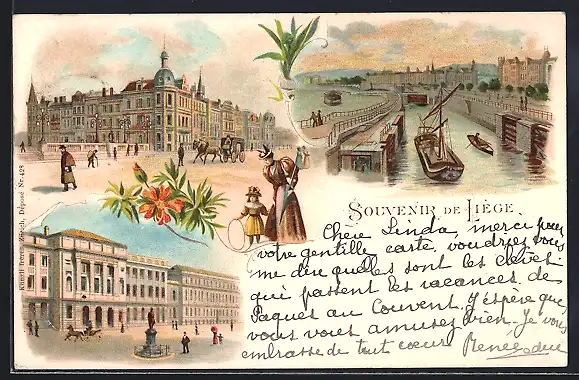 SOUVENIR DE LIÈGE.
Chère Linda, merci pour
votre gentille carte, voudriez vous
me dire quelles sont les élèves
qui passent les vacances de
Paques au Couvent. J'éspère que
vous vous amusez bien. Je vous
embrasse de tout coeur Renée
Künzli frères, Zürich, Déposé Nr. 428